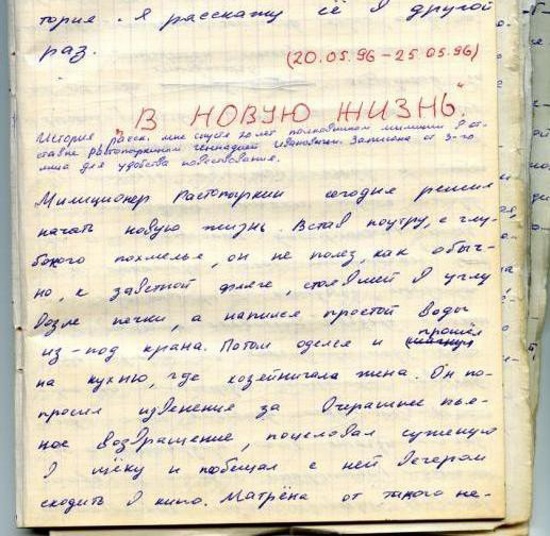 тория. Я расскажу её в другой
раз.
(20.05.96 – 25.05.96)
"В НОВУЮ ЖИЗНЬ."
История расск. мне спустя 20 лет полковником милиции в от-
ставке Растопыркиным Геннадием Ивановичем. Записана от 3-го
лица для удобства повествования.
Милиционер Растопыркин сегодня решил
начать новую жизнь. Встав поутру, с глу-
бокого похмелья, он не полез, как обыч-
но, к заветной фляге, стоявшей в углу
возле печки, а напился простой воды
из-под крана. Потом оделся и прошёл
на кухню, где хозяйничала жена. Он по-
просил извенения за вчерашнее пья-
ное возвращение, поцеловал суженую
в щёку и пообещал с ней вечером
сходить в кино. Матрёна от такого не-